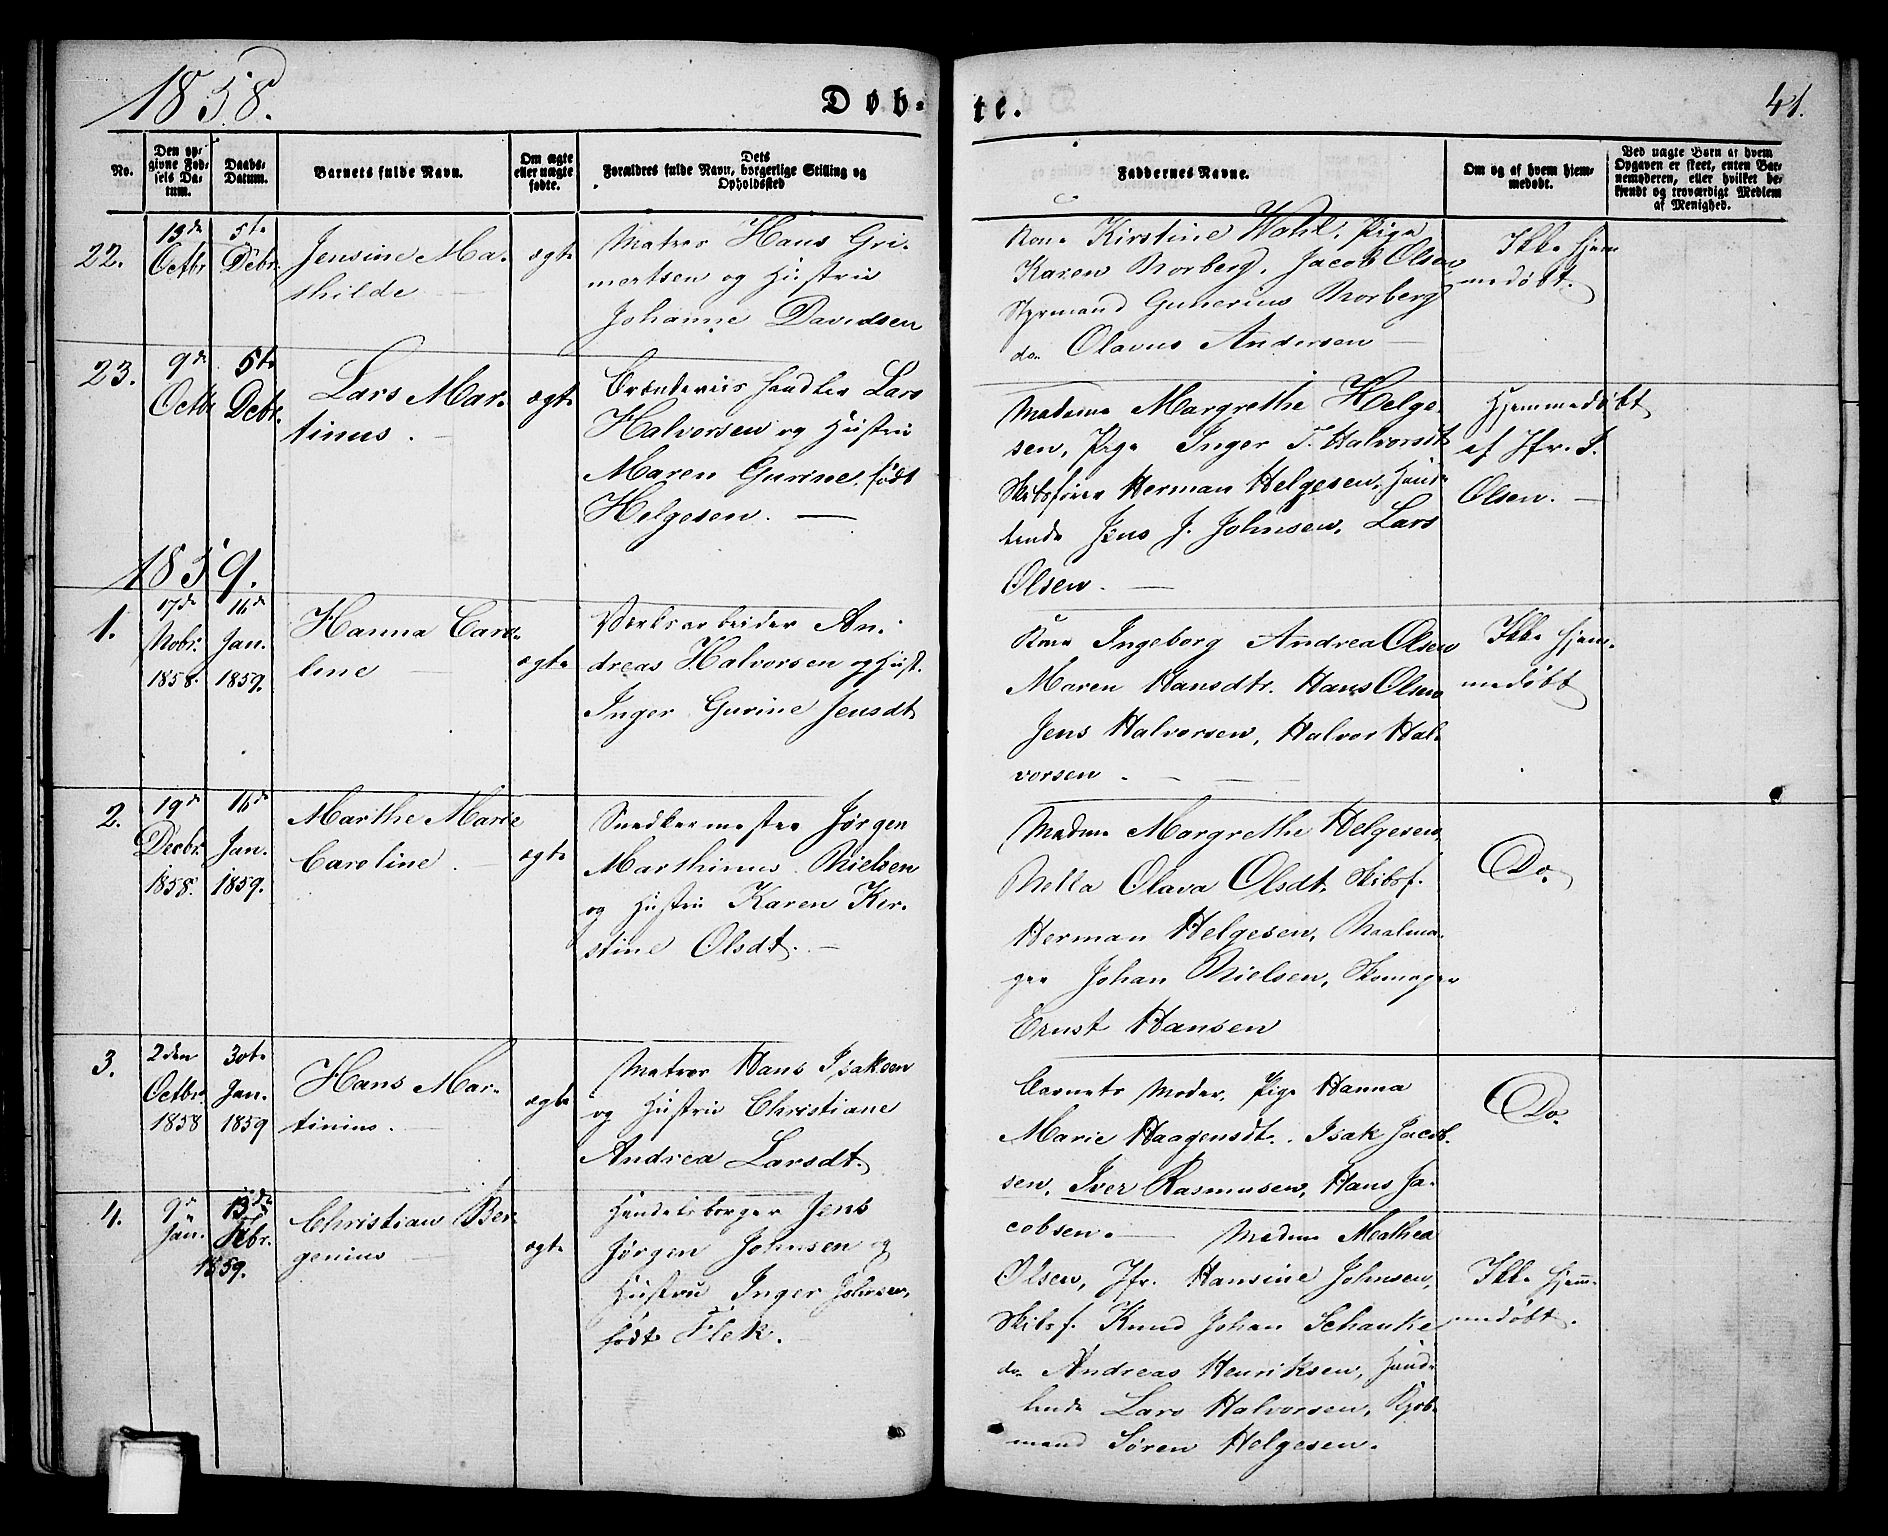 1858.
Døb-
te.
41.
No.
Den op-
givne Fød-
sels Da-
tum.
Daabs-
Datum.
Barnets fulde Navn.
Om ægte
eller uægte
fødte.
Dets
Forældres fulde Navn, borgerlige Stilling og
Opholdssted
Faddernes Navne.
Om og af hvem hjem-
medøbt.
Ved uægte Børn af hvem
Opgaven er skeet, enten Bar-
nemoderen, eller hvilket be-
kjendt og troværdigt Medlem
af Menighed.
22.
13de
Octbr
5te
Debr.
Jensine Ma-
thilde
ægte
Matros Hans Gri-
mertsen og Hustru
Johanne Davidsen
Kone Kirstine Wahl. Pige
Karen Norberg, Jacob Olsen
Styrmand Gunerius Norberg
do. Olavus Andersen
Ikke hjem
medøbt.
23.
9de
Octbr
5te
Debr.
Lars Mar-
tinus.
ægte
Brændeviis handler Lars
Halvorsen og Hustru
Maren Gurine, født
Helgesen.
Madame Margrethe Helge-
sen, Pige Inger T. Halvorsdt.
Skibsfører Herman Helgesen, Hand-
lende Jens J. Johnsen, Lars
Olsen.
Hjemmedøbt
af Jfr. S.
Olsen.
1859.
1.
17de
Nobr.
1858.
16de
Jan.
1859.
Hanna Caro-
line
ægte
Værksarbeider An-
dreas Halvorsen og Hust.
Inger Gurine Jensdt.
Kone Ingeborg Andrea Olsen
Maren Hansdtr. Hans Olsen
Jens Halvorsen, Halvor Hal-
vorsen.
Ikke hjem-
medøbt
2.
19de
Decbr.
1858.
16de
Jan.
1859.
Marthe Marie
Caroline.
ægte
Snedkermester Jørgen
Marthinus Nielsen
og Hustru Karen Kir-
stine Olsdt.
Madme Margrethe Helgesen,
Nella Olava Olsdt. Skibsf.
Herman Helgesen, Naalma-
ger Johan Nielsen, Skomager
Ernst Hansen
Do.
3.
2den
Octbr.
1858
30te
Jan.
1859
Hans Mar-
tinius.
ægte
Matros Hans Isaksen
og Hustru Christiane
Andrea Larsdt.
Barnets Moder, Pige Hanna
Marie Haagensdt. Isak Jacob-
sen, Iver Rasmussen, Hans Ja-
cobsen.
Do.
4.
9de
Jan.
13de
Febr.
1859.
Christian Ber-
genius
ægte
Handelsborger Jens
Jørgen Johnsen og
Hustru Inger Johnsen,
født Flek.
Madme Mathea
Olsen, Jfr. Hansine Johnsen,
Skibsf. Knud Johan Schanke
do. Andreas Henriksen, Hand-
lende Lars Halvorsen, Kjøb-
mand Søren Helgesen.
Ikke hjem-
medøbt.